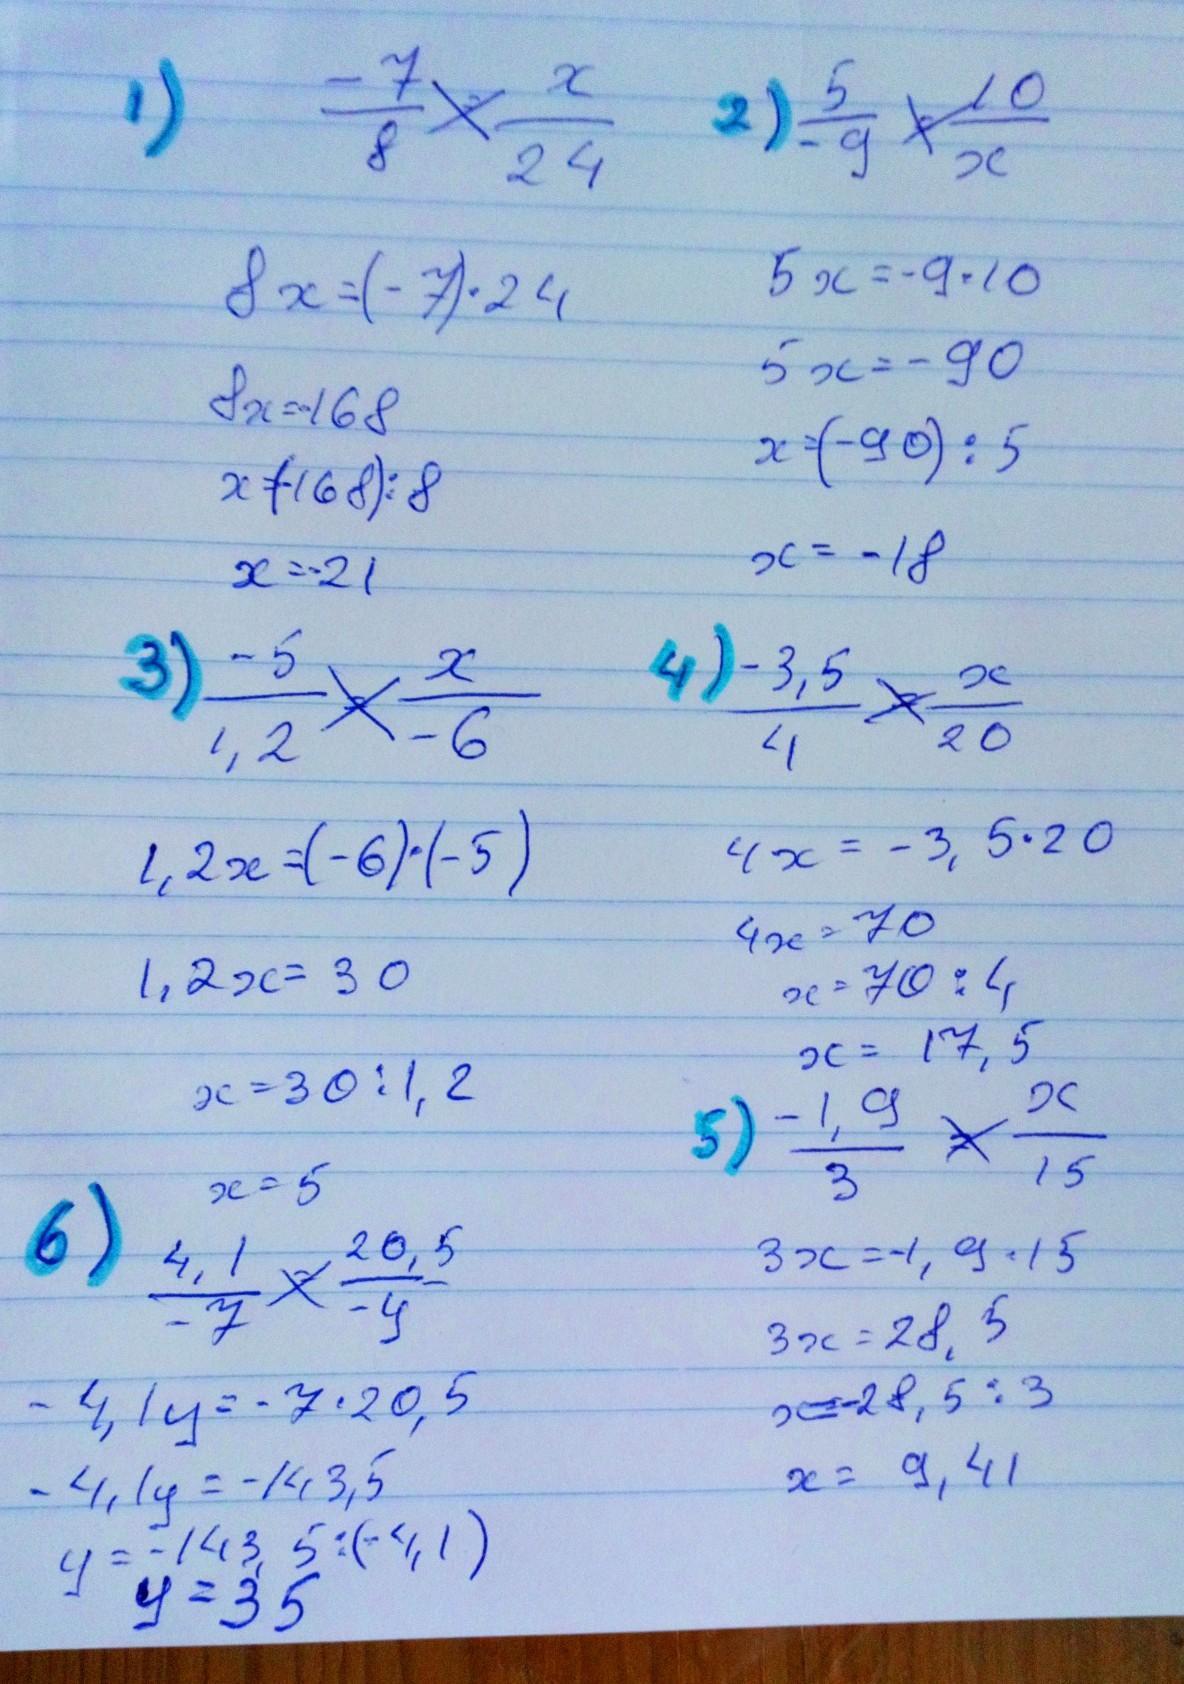 1) -7/8 = x/24
8x=(-7)·24
8x=-168
x=(-168):8
x=-21
2) 5/-9 = 10/x
5x=-9·10
5x=-90
x=(-90):5
x=-18
3) -5/1,2 = x/-6
1,2x=(-6)·(-5)
1,2x=30
x=30:1,2
x=5
4) -3,5/4 = x/20
4x=-3,5·20
4x=70
x=70:4
x=17,5
5) -1,9/3 = x/15
3x=-1,9·15
3x=28,5
x=-28,5:3
x=9,41
6) 4,1/-7 = 20,5/-y
-4,1y=-7·20,5
-4,1y=-143,5
y=-143,5:(-4,1)
y=35